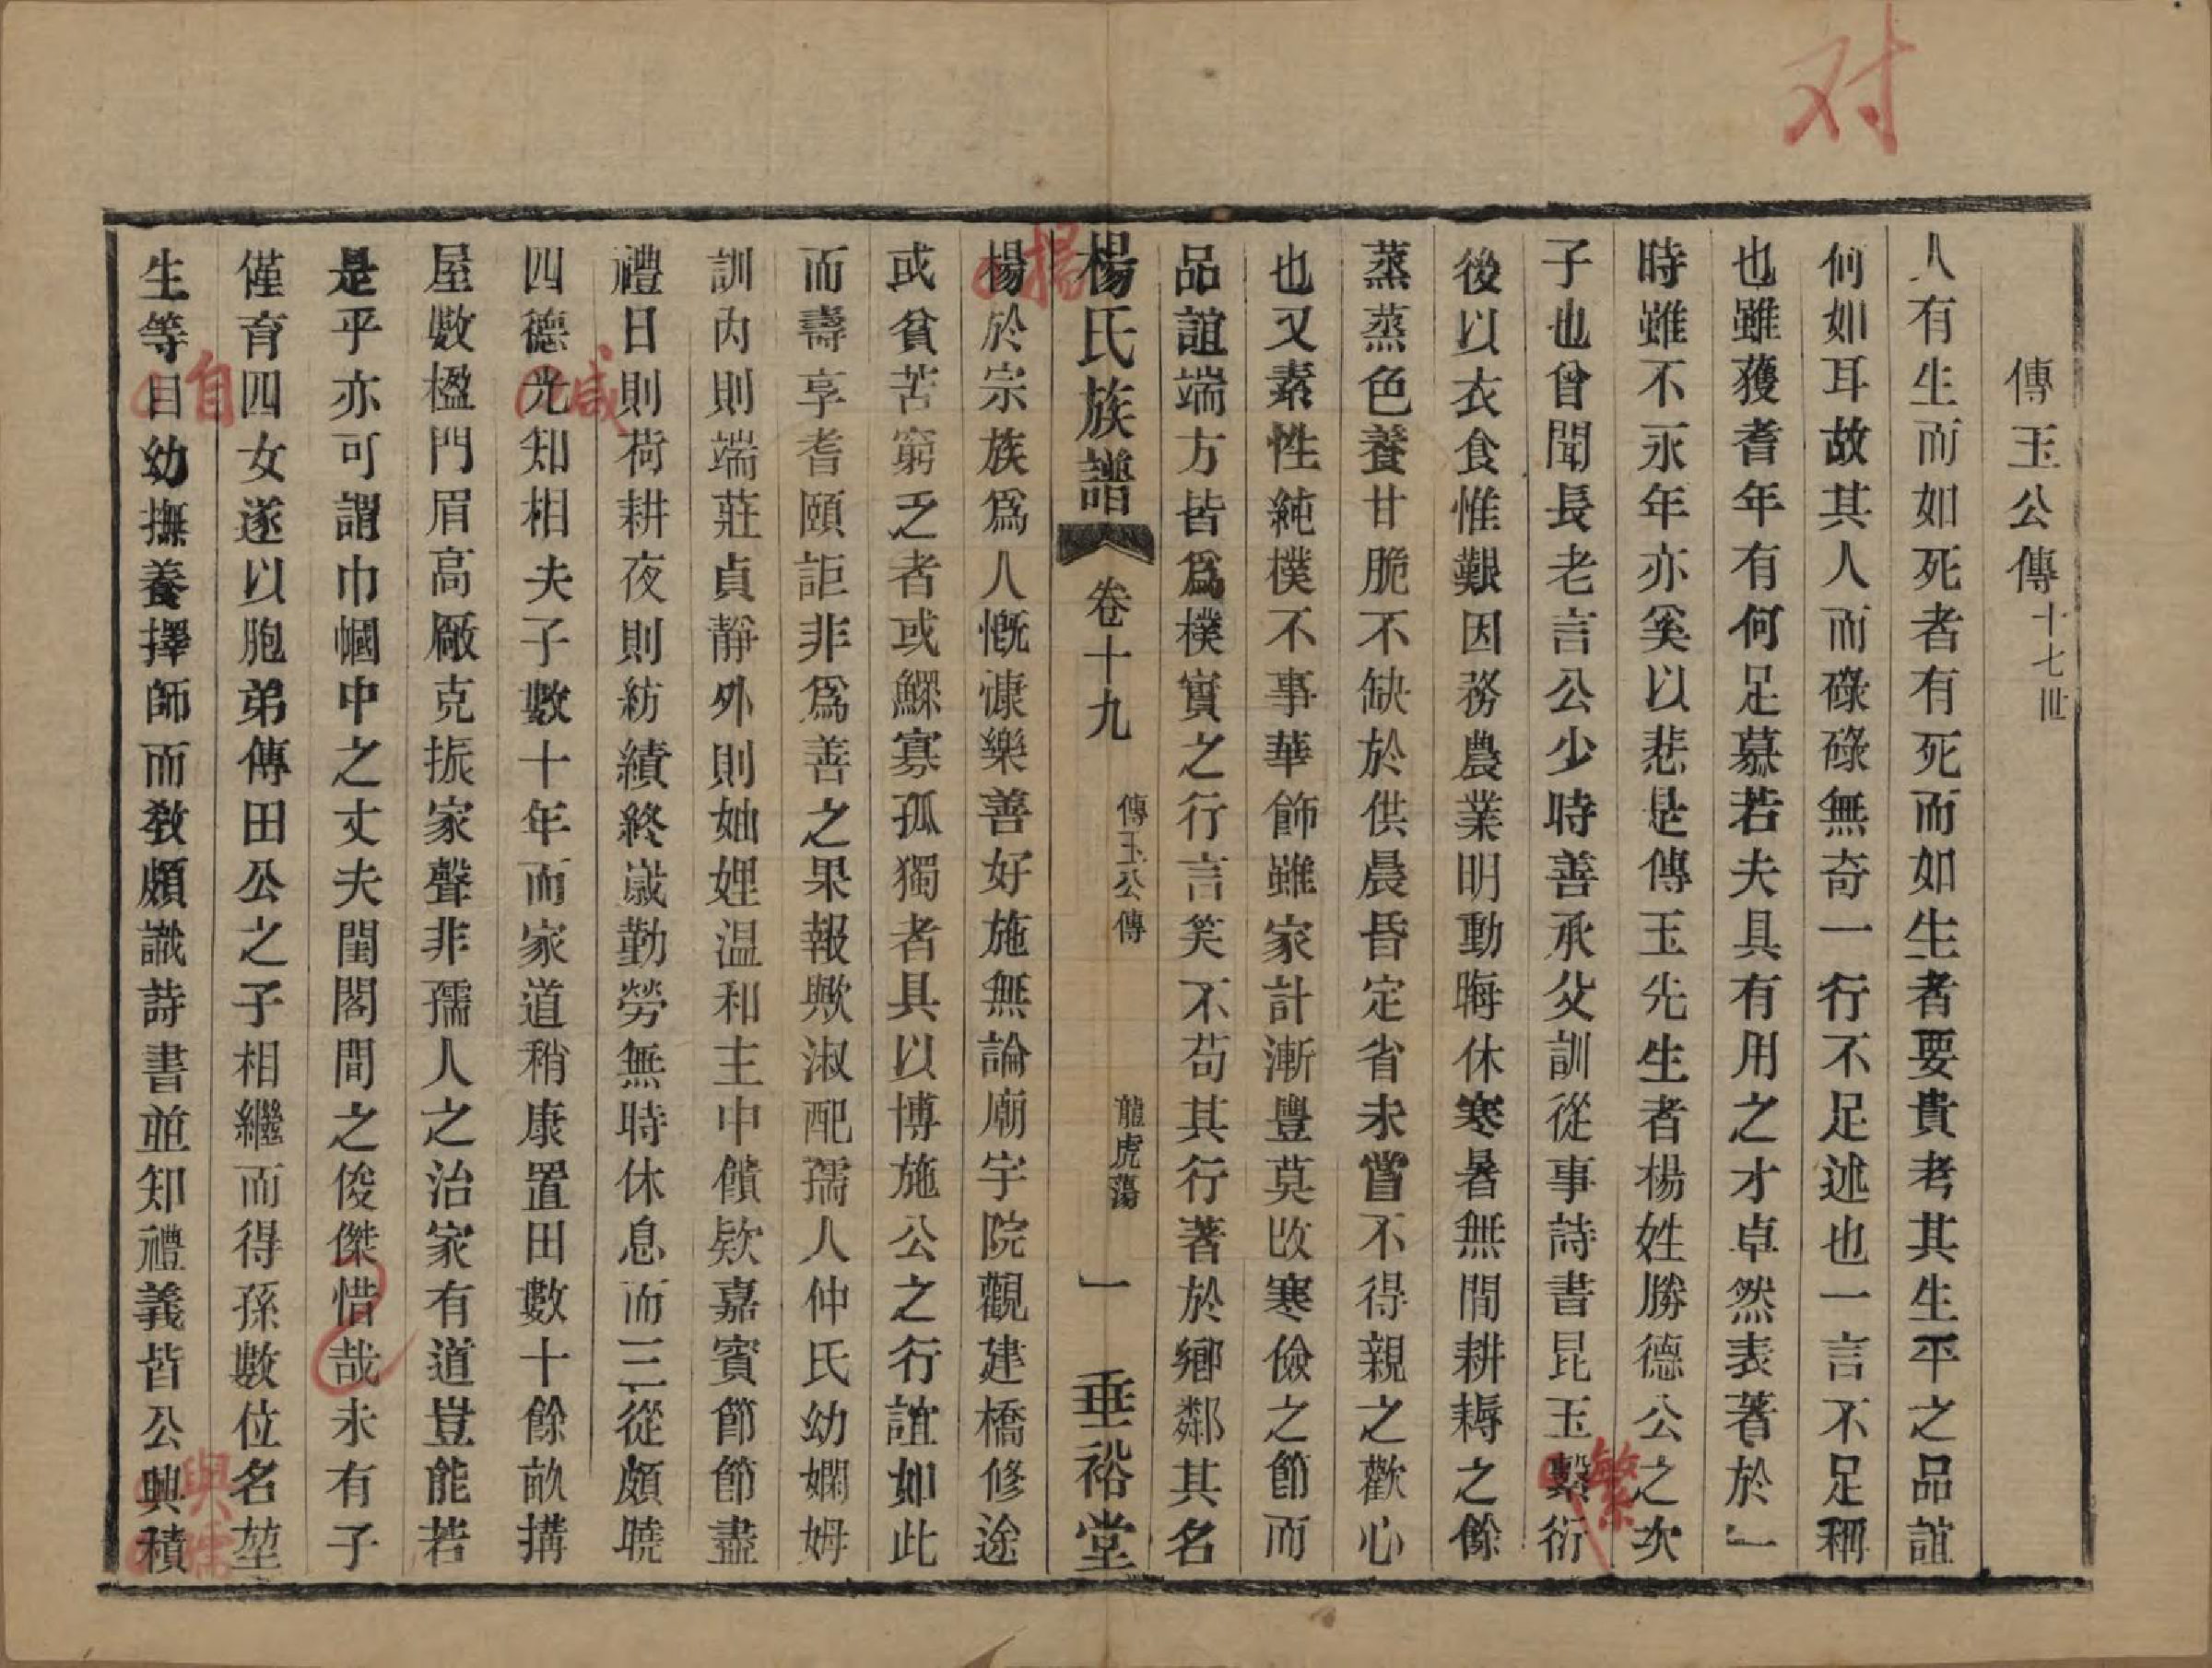 对
傳玉公傳十七世
人有生而如死者有死而如生者要貴考其生平之品誼
何如耳故其人而碌碌無奇一行不足述也一言不足稱
也雖獲耆年有何足慕若夫具有用之才卓然表著於一
時雖不永年亦奚以悲是傳玉先生者楊姓勝德公之次
子也曾聞長老言公少時善承父訓從事詩書昆玉繫衍
繁
後以衣食惟艱因務農業明動晦休寒暑無間耕耨之餘
蒸蒸色養甘脆不缺於供晨昏定省未嘗不得親之歡心
也又素性純樸不事華飾雖家計漸豐莫改寒儉之節而
品誼端方皆爲樸實之行言笑不苟其行著於鄉鄰其名
楊氏族譜 卷十九 傳玉公傳 龍虎蕩 一 垂裕堂
揚
楊於宗族爲人慨慷樂善好施無論廟宇院觀建橋修途
或貧苦窮乏者或鰥寡孤獨者具以博施公之行誼如此
而壽享耆頤詎非爲善之果報歟淑配孺人仲氏幼嫻姆
訓內則端莊貞靜外則妯娌温和主中饋欵嘉賓節節盡
禮日則荷耕夜則紡績終歲勤勞無時休息而三從頗曉
四德光知相夫子數十年而家道稍康置田數十餘畝搆
咸
屋數楹門眉高厰克振家聲非孺人之治家有道豈能若
是乎亦可謂巾幗中之丈夫閨閣間之俊傑惜哉未有子
僅育四女遂以胞弟傳田公之子相繼而得孫數位名堃
生等目幼撫養擇師而教頗識詩書並知禮義皆公興積
自
與